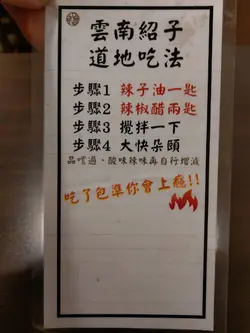 雲南紹子
道地吃法
步驟1 辣子油一匙
步驟2 辣椒醋兩匙
步驟3 攪拌一下
步驟4 大快朵頤
品嚐過、酸味辣味再自行增減
吃了包準你會上癮!!